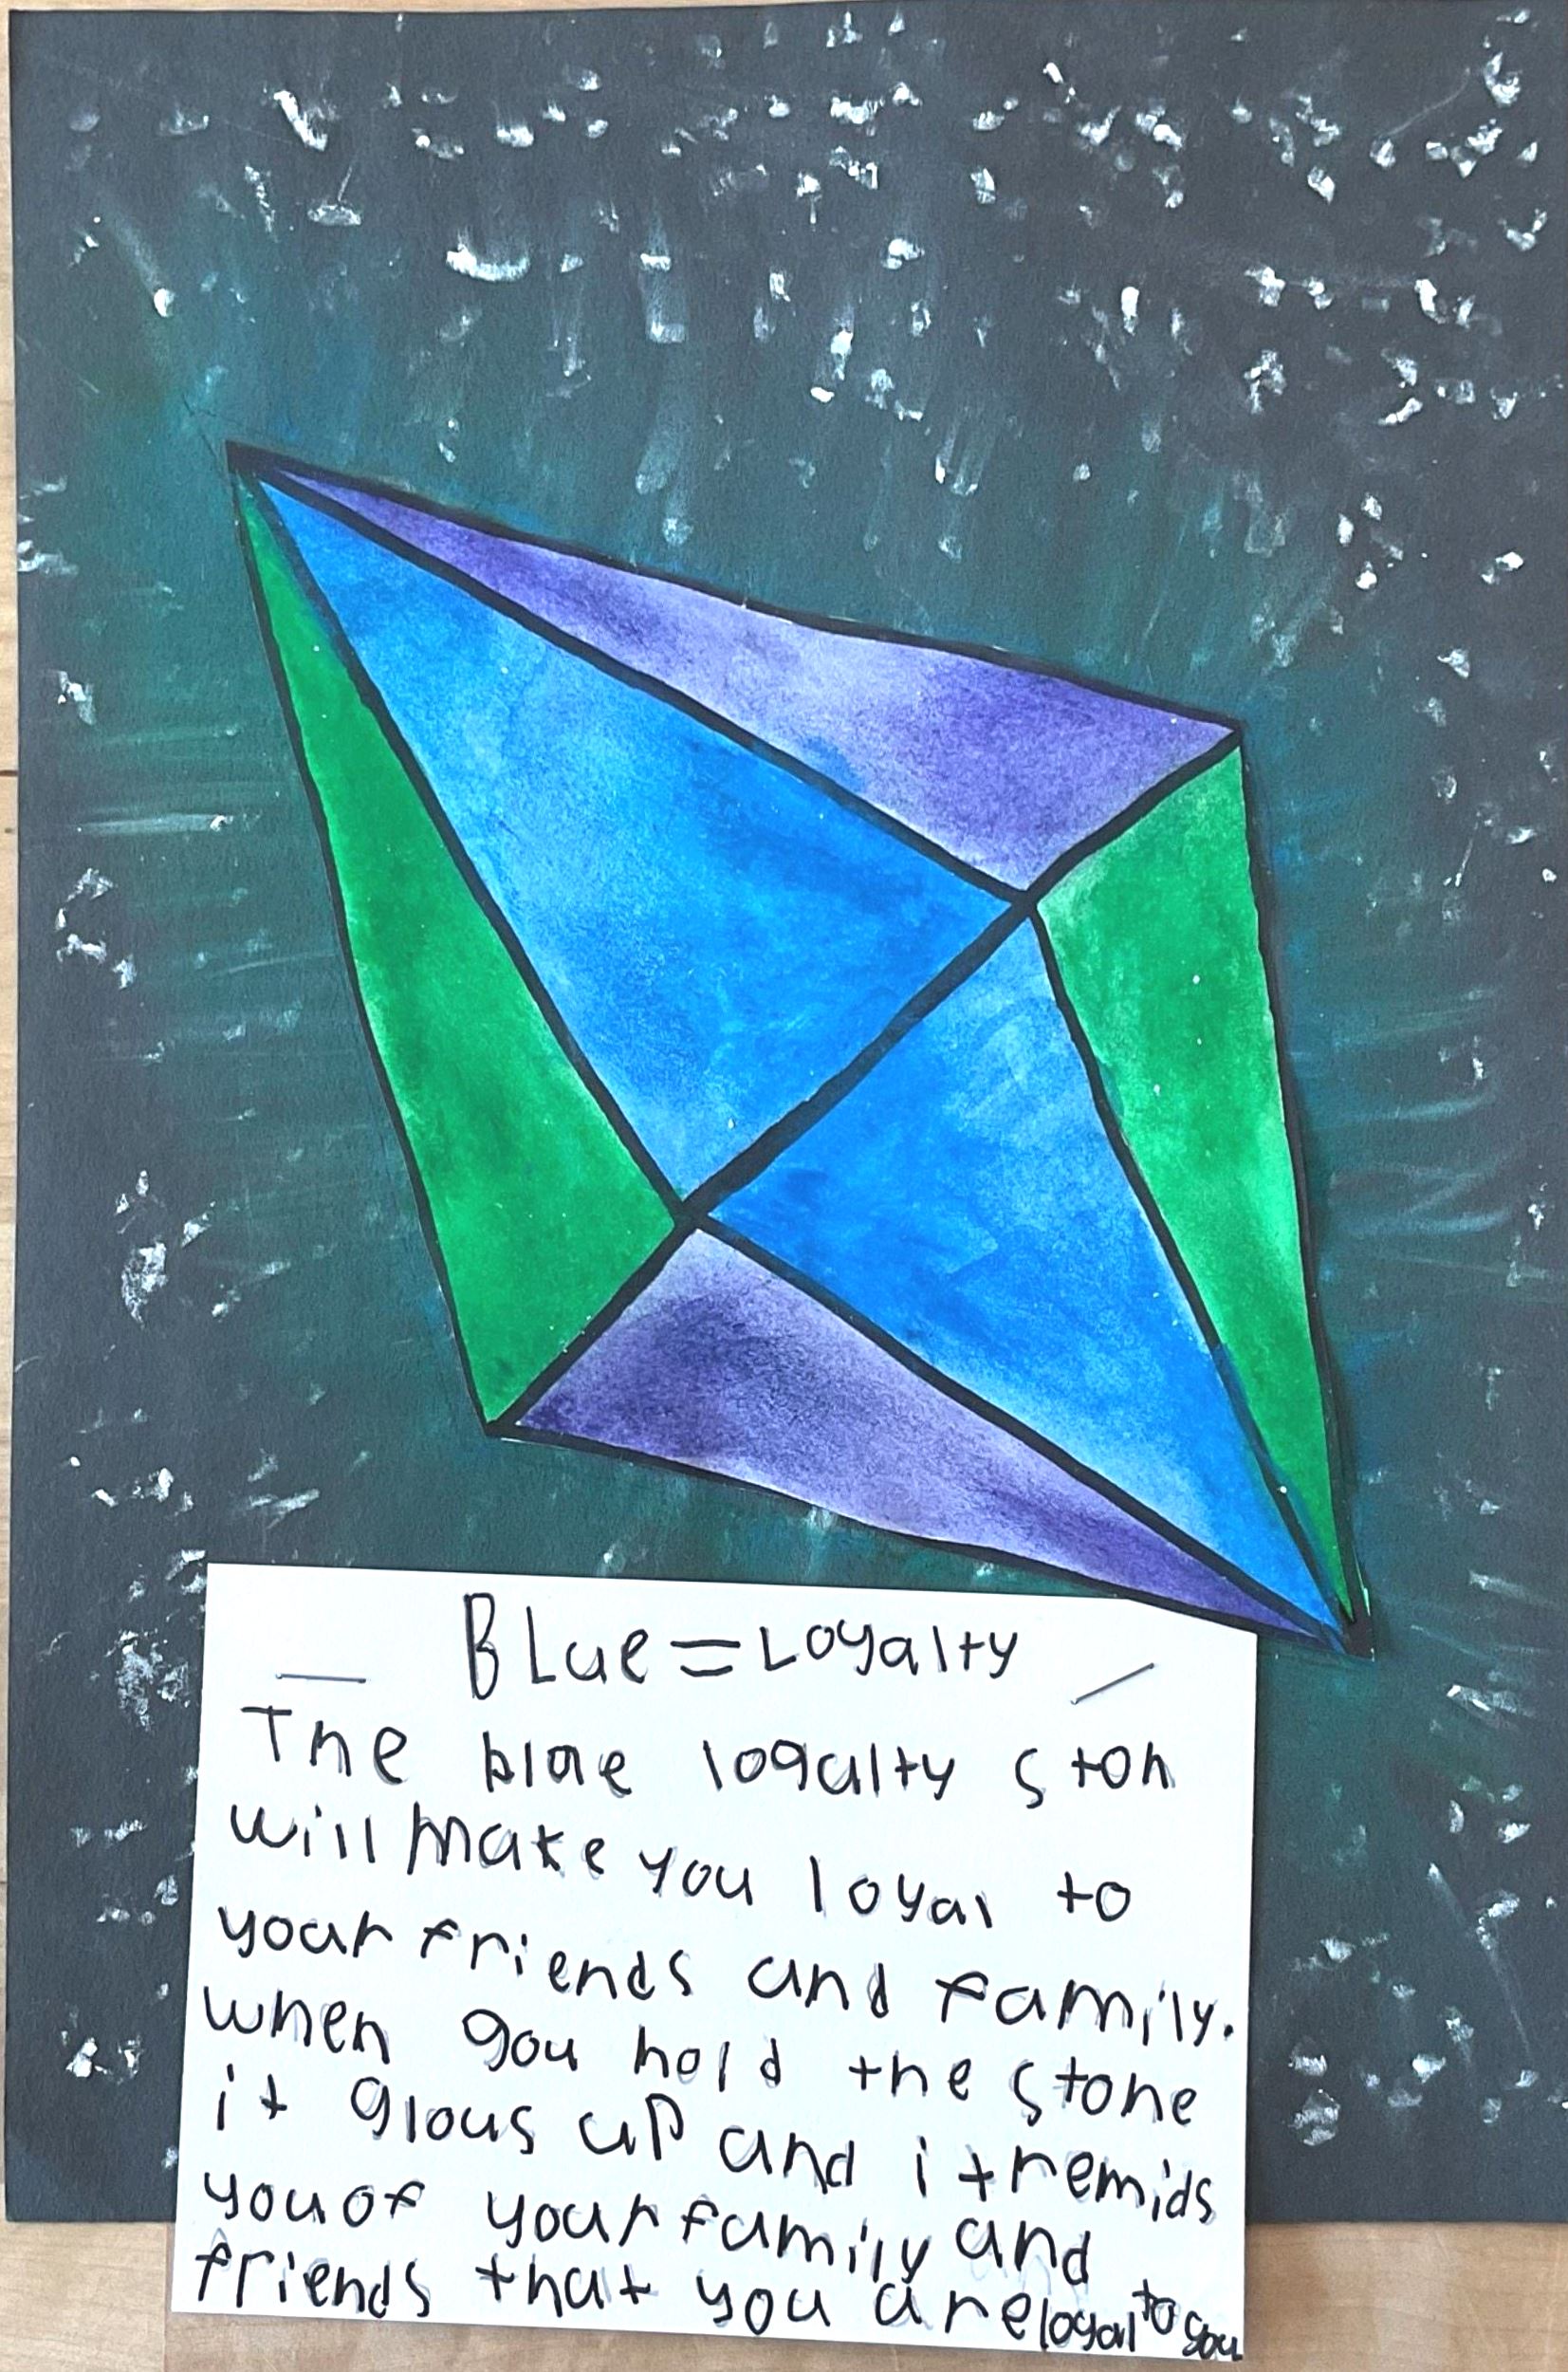 BLue = Loyalty
The blue loyalty ston
will make you loyal to
your friends and family.
when you hold the stone
it glous up and it remids
you of your family and
friends that you are loyal to you